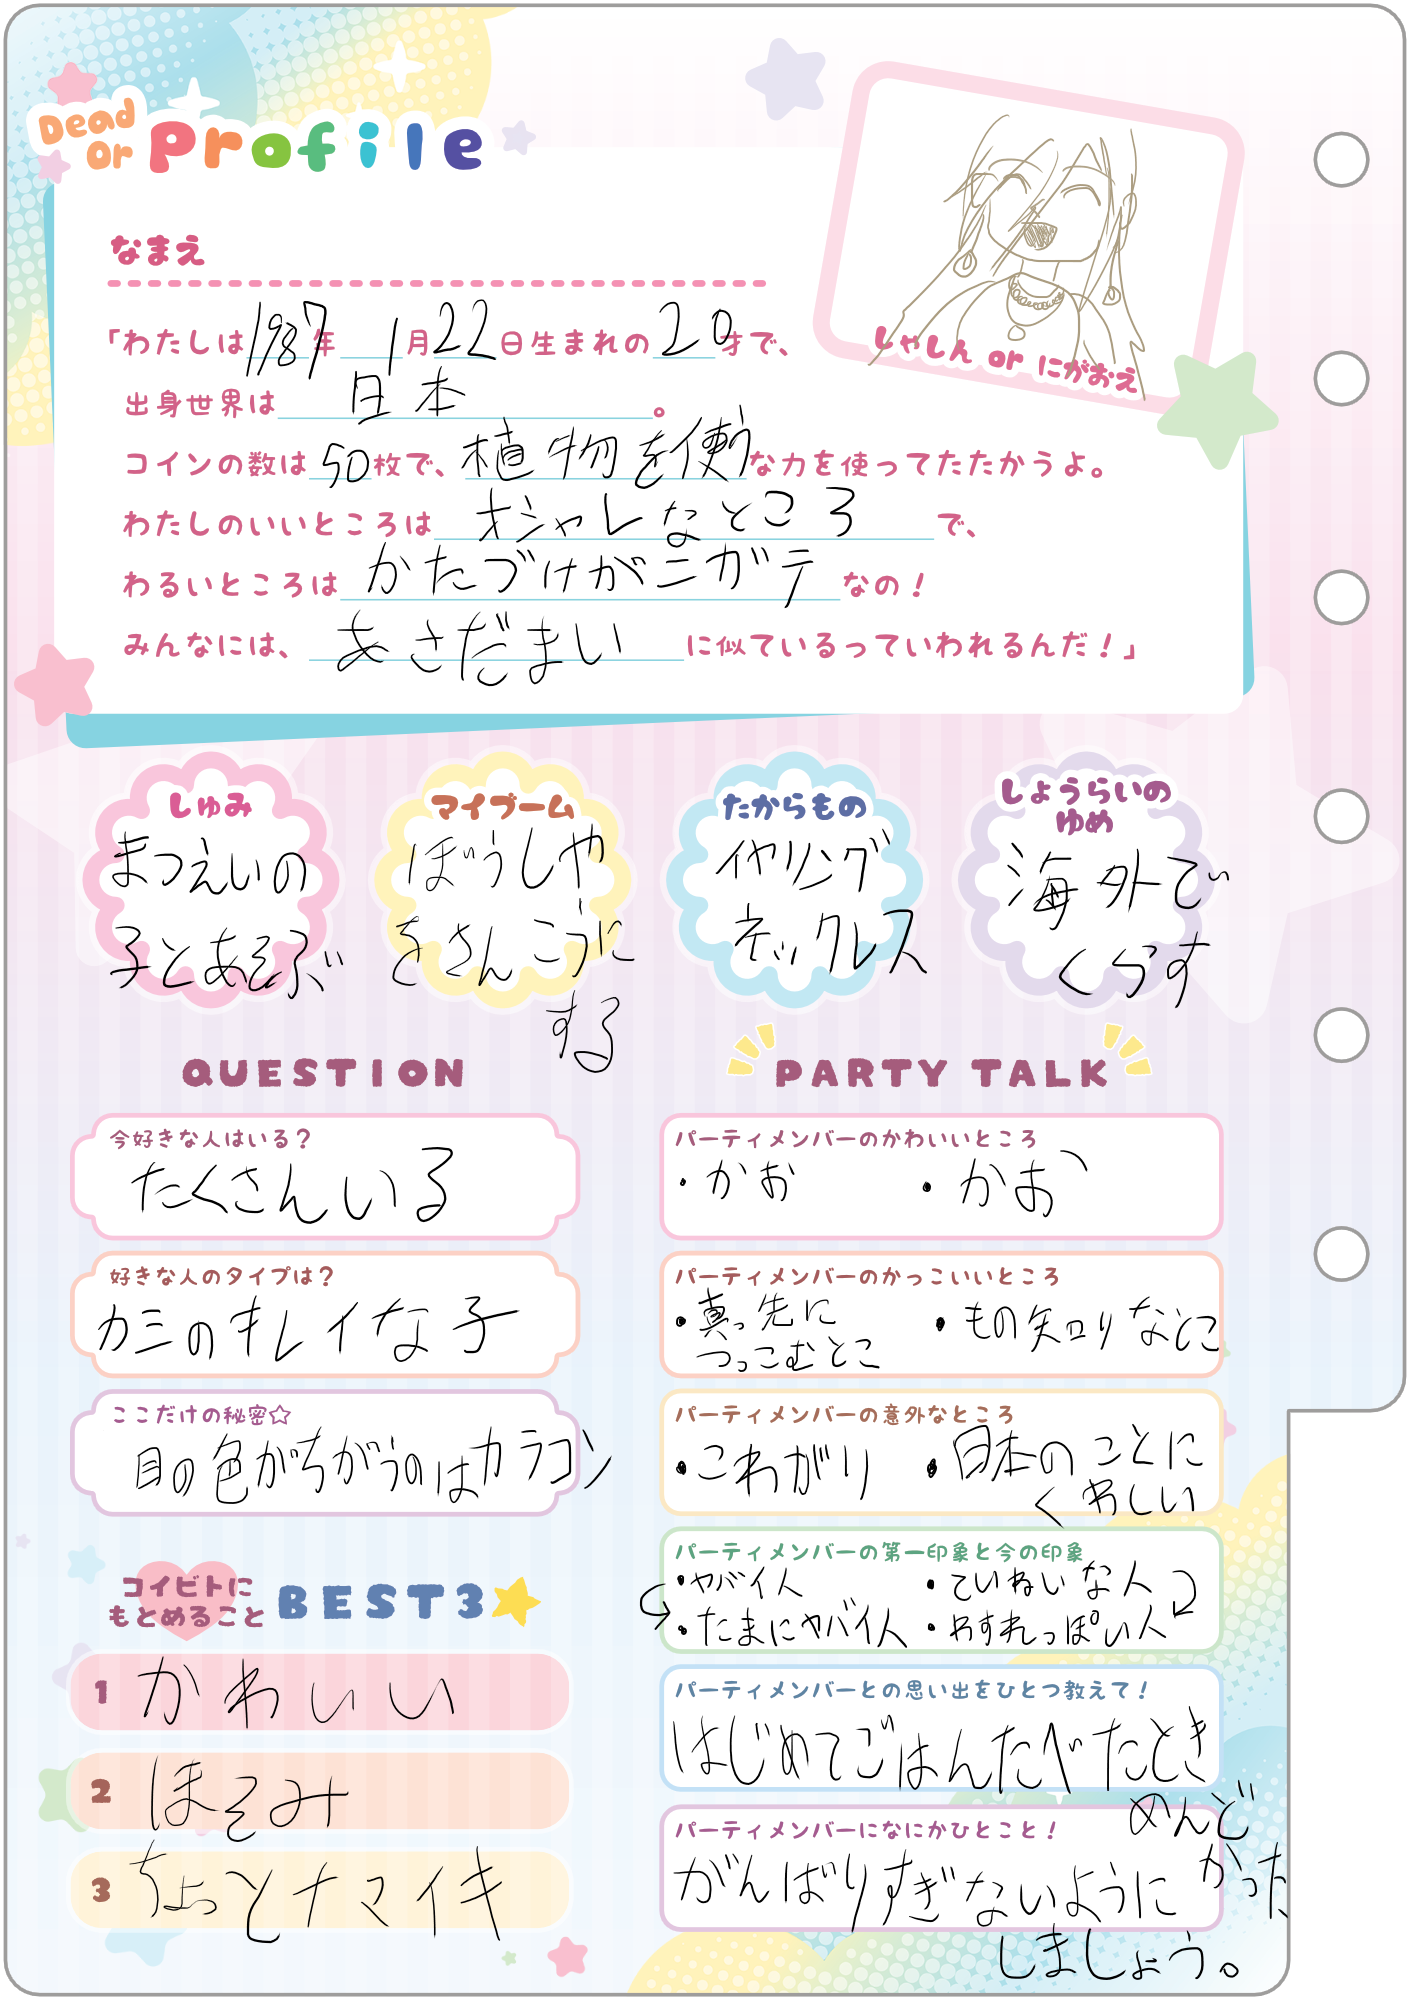 Dead Or Profile
なまえ
「わたしは1987年1月22日生まれの20才で、
出身世界は日本。
コインの数は50枚で、植物を使うな力を使ってたたかうよ。
わたしのいいところはオシャレなところで、
わるいところはかたづけがニガテなの！
みんなには、あさだまいに似ているっていわれるんだ！」
しゃしん or にがおえ
しゅみ
まつえいの
子とあそぶ
マイブーム
ぼうしや
をさんこうに
する
たからもの
イヤリング
ネックレス
しょうらいの
ゆめ
海外で
くらす
QUESTION
今好きな人はいる？
たくさんいる
好きな人のタイプは？
カミのキレイな子
ここだけの秘密☆
目の色がちがうのはカラコン
コイビトに
もとめること BEST3
1 かわいい
2 ほそみ
3 ちょっとナマイキ
PARTY TALK
パーティメンバーのかわいいところ
・かお ・かお
パーティメンバーのかっこいいところ
・真っ先に
つっこむとこ
・もの知りなとこ
パーティメンバーの意外なところ
・こわがり
・日本のことに
くわしい
パーティメンバーの第一印象と今の印象
・ヤバイ人 ・ていねいな人
・たまにヤバイ人 ・わすれっぽい人
パーティメンバーとの思い出をひとつ教えて！
はじめてごはんたべたとき
めんど
かった
パーティメンバーになにかひとこと！
がんばりすぎないように
しましょう。